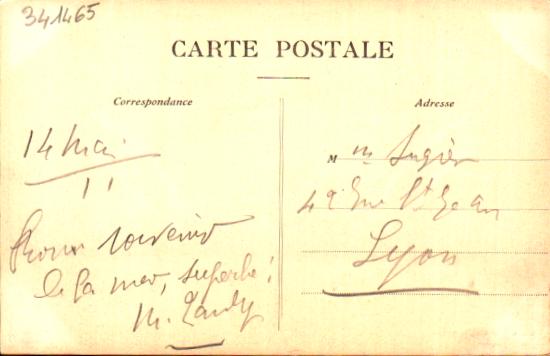 341465
CARTE POSTALE
Correspondance
14 Mai
11
souvenir
de la mer, superbe!
M.
Adresse
M
Rue St Jean
Lyon